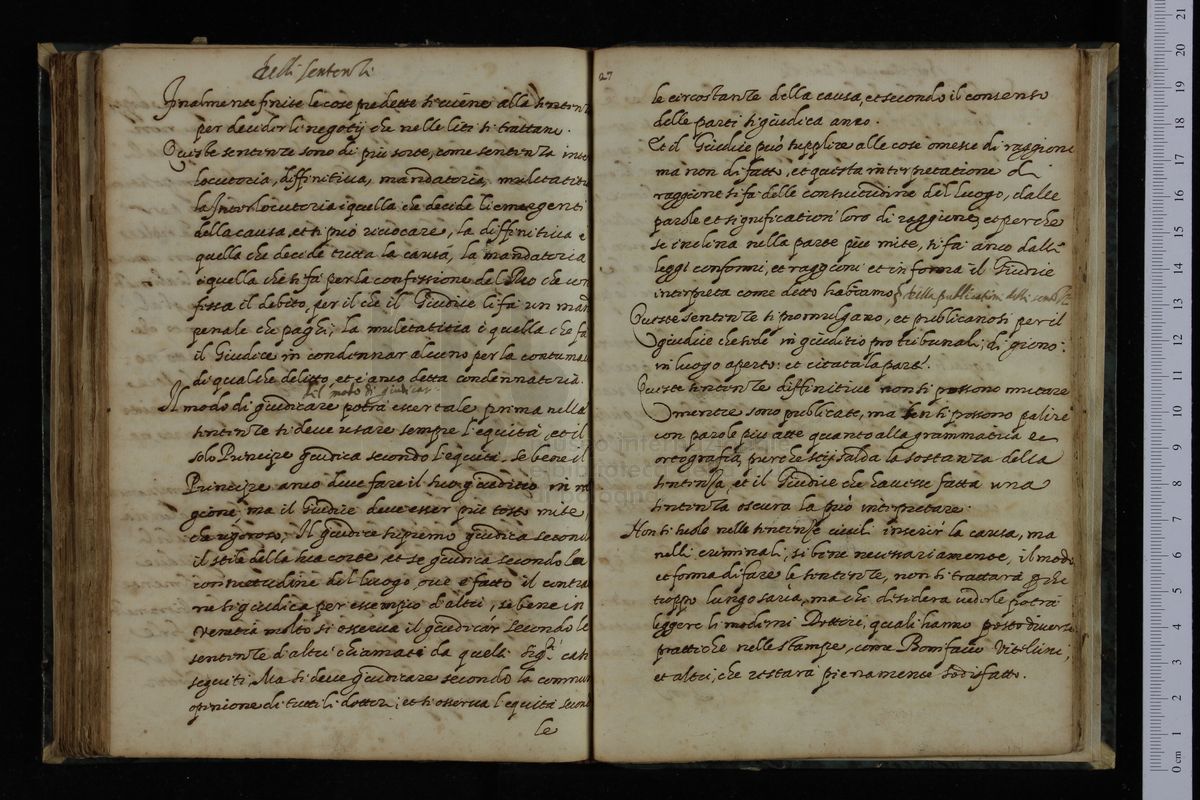 delle sentenze
Finalmente finite le cose predette si viene alla senten
per decider li negotij che nelle liti si trattano.
Queste sentenze sono di più sorte, come sentenza inter
locutoria, diffinitiva, mandatoria, muletatitia
la Interlocutoria è quella che decide li emergenti
della causa, et si può rivocare, la diffinitiva è
quella che decide tutta la causa, la mandatoria
è quella che si fà per la confessione del Reo che con
fessa il debito, per il che il Giudice li fà un man
penale che paghi; la muletatitia è quella che fà
il Giudice in condennar alcuno per la contumac
di qualche delitto, et è anco detta condennatoria.
Del modo di giudicar
Il modo di giudicare potrà esser tale, prima nelle
sentenze si deve usare sempre l'equità, et il
solo Principe giudica secondo l'equità, se bene il
Principe anco deve fare il suo giuditio in ra
gione, ma il Giudice deve esser più tosto mite,
che rigoroso; Il giudice supremo giudica second
il stile della sua corte, et se giudica secondo la
consuetudine del luogo, ove è fatto il contra
ne si giudica per essempio d'altri, se bene in
Venetia molto si osserva il giudicar secondo le
sentenze d'altri chiamati da quelli Sig.ri casi
seguiti, Ma si deve giudicare secondo la commun
opinione di tutti li dottori, et si osserva l'equità second
le
27
le circostanze della causa, et secondo il consenso
delle parti si giudica anco.
Et il Giudice può supplire alle cose omesse di raggione
ma non di fatto, et questa interpretatione di
raggione si fa delle consuetudine del luogo, dalle
parole et significationi loro di raggione, et perche
se inclina nella parte più mite, si fa anco dalle
leggi conformi, et raggioni et in forma il Giudice
interpreta come detto habbiamo. Della publication delle sentenze
Queste sentenze si promulgano, et publicanosi per il
giudice che siede in giuditio pro tribunali, di giorno:
in luogo aperto: et citata la parte.
Queste sentenze diffinitive non si possono mutare
mentre sono publicate, ma ben si possono polire
con parole più atte quanto alla grammatica et
ortografia, purche stij salda la sostanza della
sentenza, et il Giudice che havesse fatta una
sentenza oscura la può interpretare.
Non si suole nelle sentenze civili inserir la causa, ma
nelli criminali, si bene necessariamente, il modo
et forma di fare le sentenze, non si trattarà perche
troppo lungo saria, ma chi desidera vederle potrà
leggere li moderni Dottori, quali hanno posto diverse
prattiche nelle stampe, come Bonifacio Vitelini,
et altri, che restarà pienamente sodisfatto.